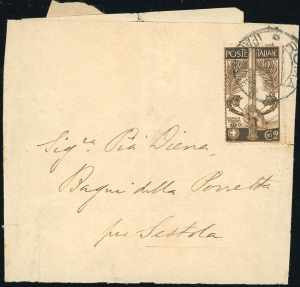 POSTE ITALIANE
ROMA
Sig.ra Pia Diena,
Bagni della Porretta
per Sestola